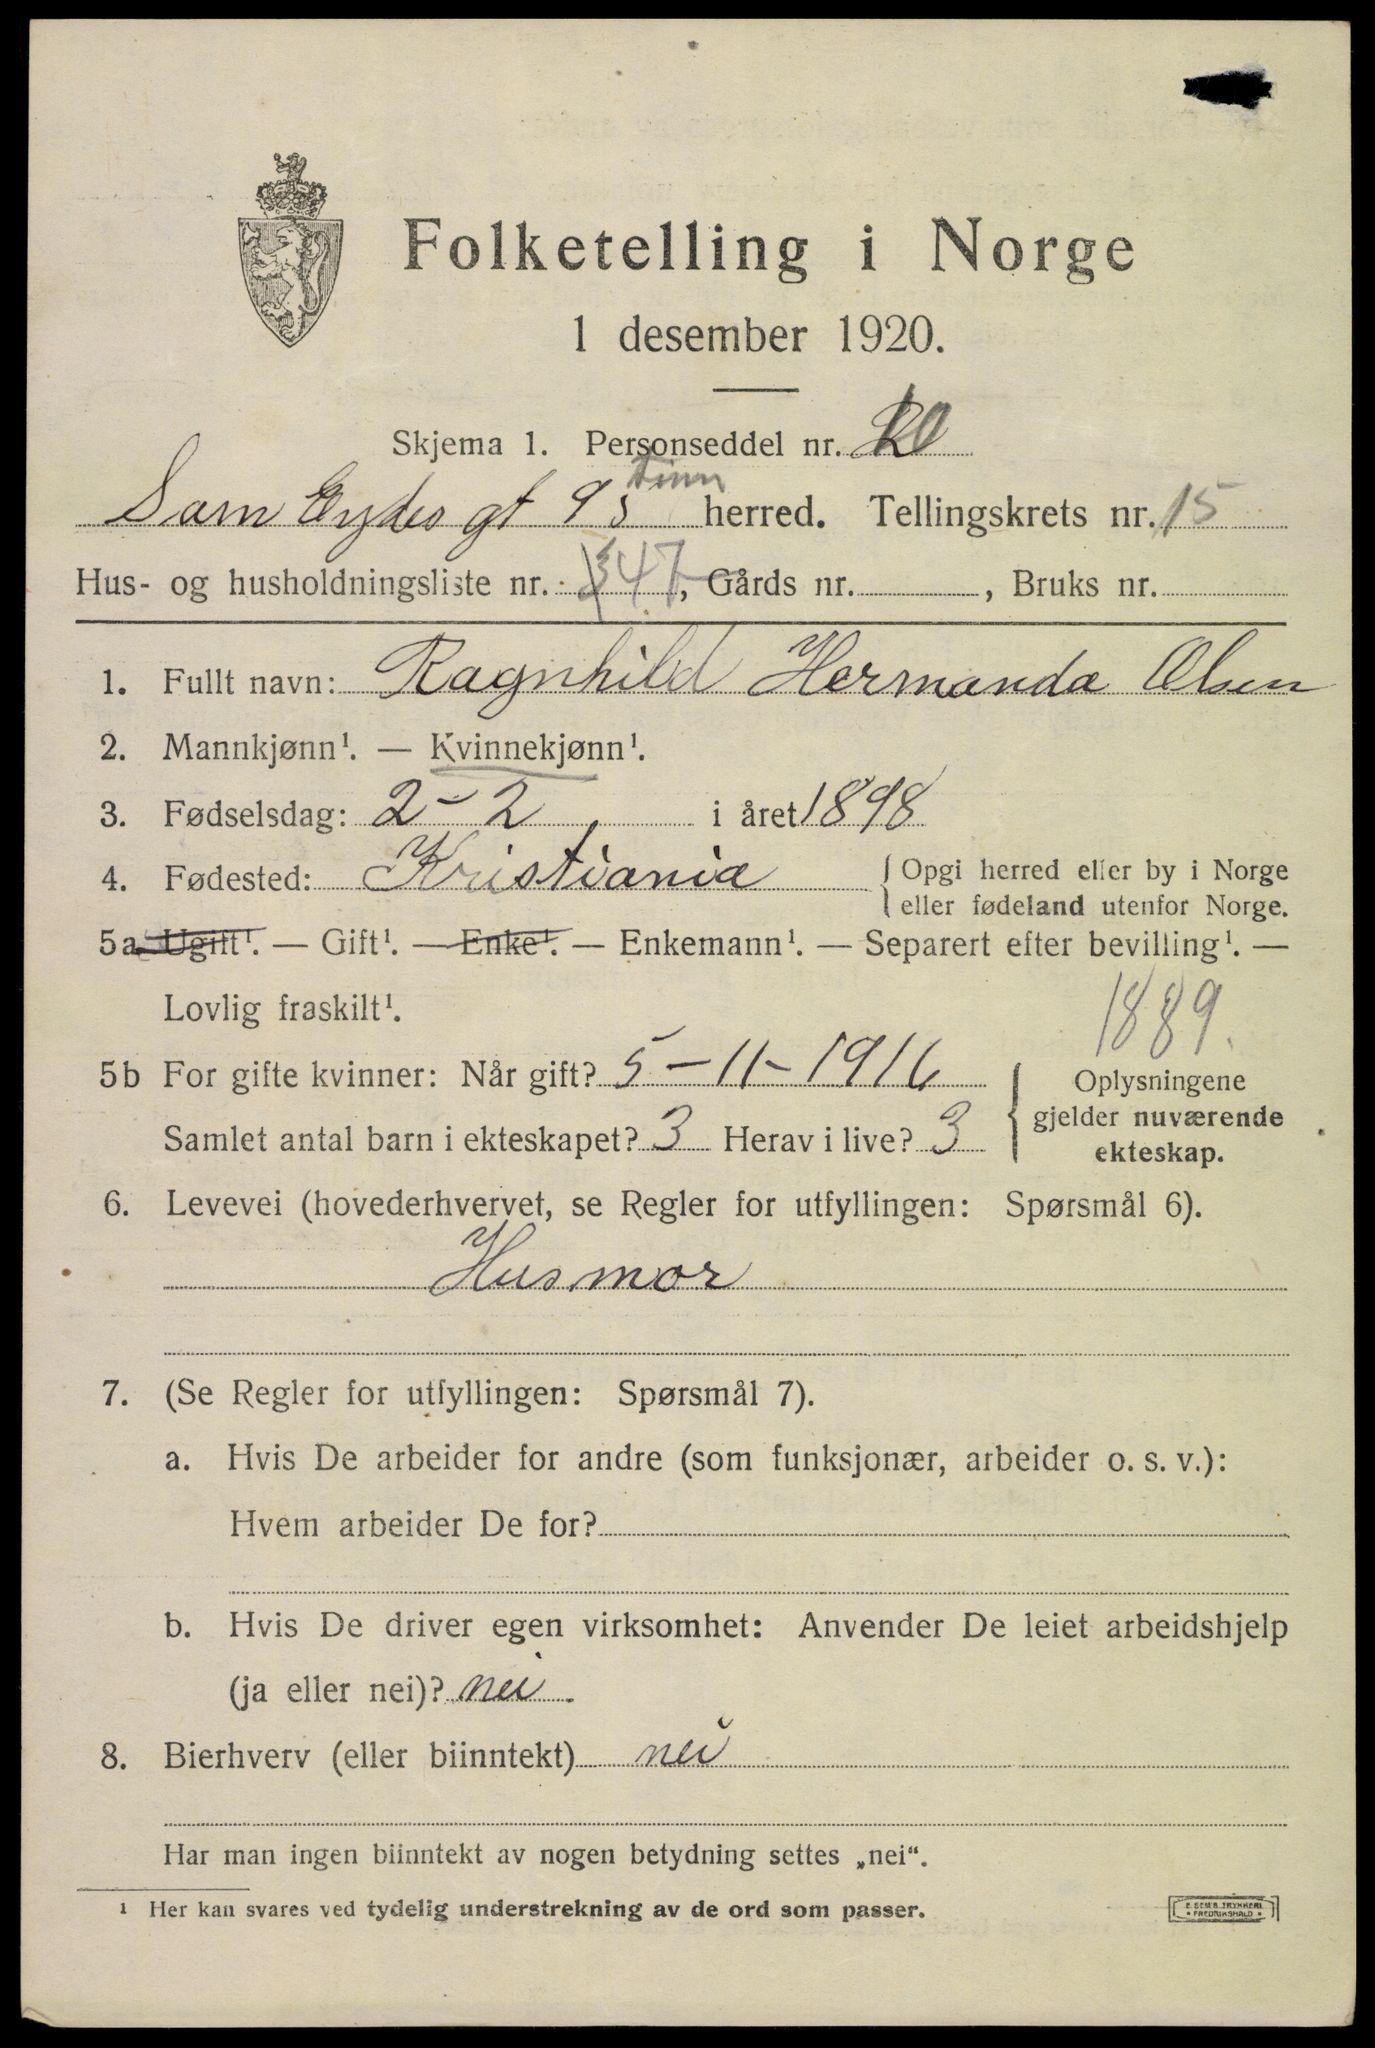 Folketelling i Norge
1 desember 1920.
Skjema 1. Personseddel nr.
Tinn
Sam Eydes gt 93 herred. Tellingskrets nr. 15
Hus- og husholdningsliste nr. 47, Gårds nr. , Bruks nr.
1. Fullt navn: Ragnhild Hermanda Olsen
2. Mannkjønn¹. — Kvinnekjønn¹.
3. Fødselsdag: 2-2 i året 1898
4. Fødested: Kristiania { Opgi herred eller by i Norge
eller fødeland utenfor Norge.
5a Ugift¹. — Gift¹. — Enke¹. — Enkemann¹. — Separert efter bevilling¹. —
Lovlig fraskilt¹.
1889.
5b For gifte kvinner: Når gift? 5-11-1916
Samlet antal barn i ekteskapet? 3 Herav i live? 3
Oplysningene
gjelder nuværende
ekteskap.
6. Levevei (hovederhvervet, se Regler for utfyllingen: Spørsmål 6).
Husmor
7. (Se Regler for utfyllingen: Spørsmål 7).
a. Hvis De arbeider for andre (som funksjonær, arbeider o. s. v.):
Hvem arbeider De for?
b. Hvis De driver egen virksomhet: Anvender De leiet arbeidshjelp
(ja eller nei)? nei.
8. Bierhverv (eller biinntekt) nei
Har man ingen biinntekt av nogen betydning settes „nei“.
¹ Her kan svares ved tydelig understrekning av de ord som passer.
E. SEM'S TRYKKERI
FREDRIKSHALD